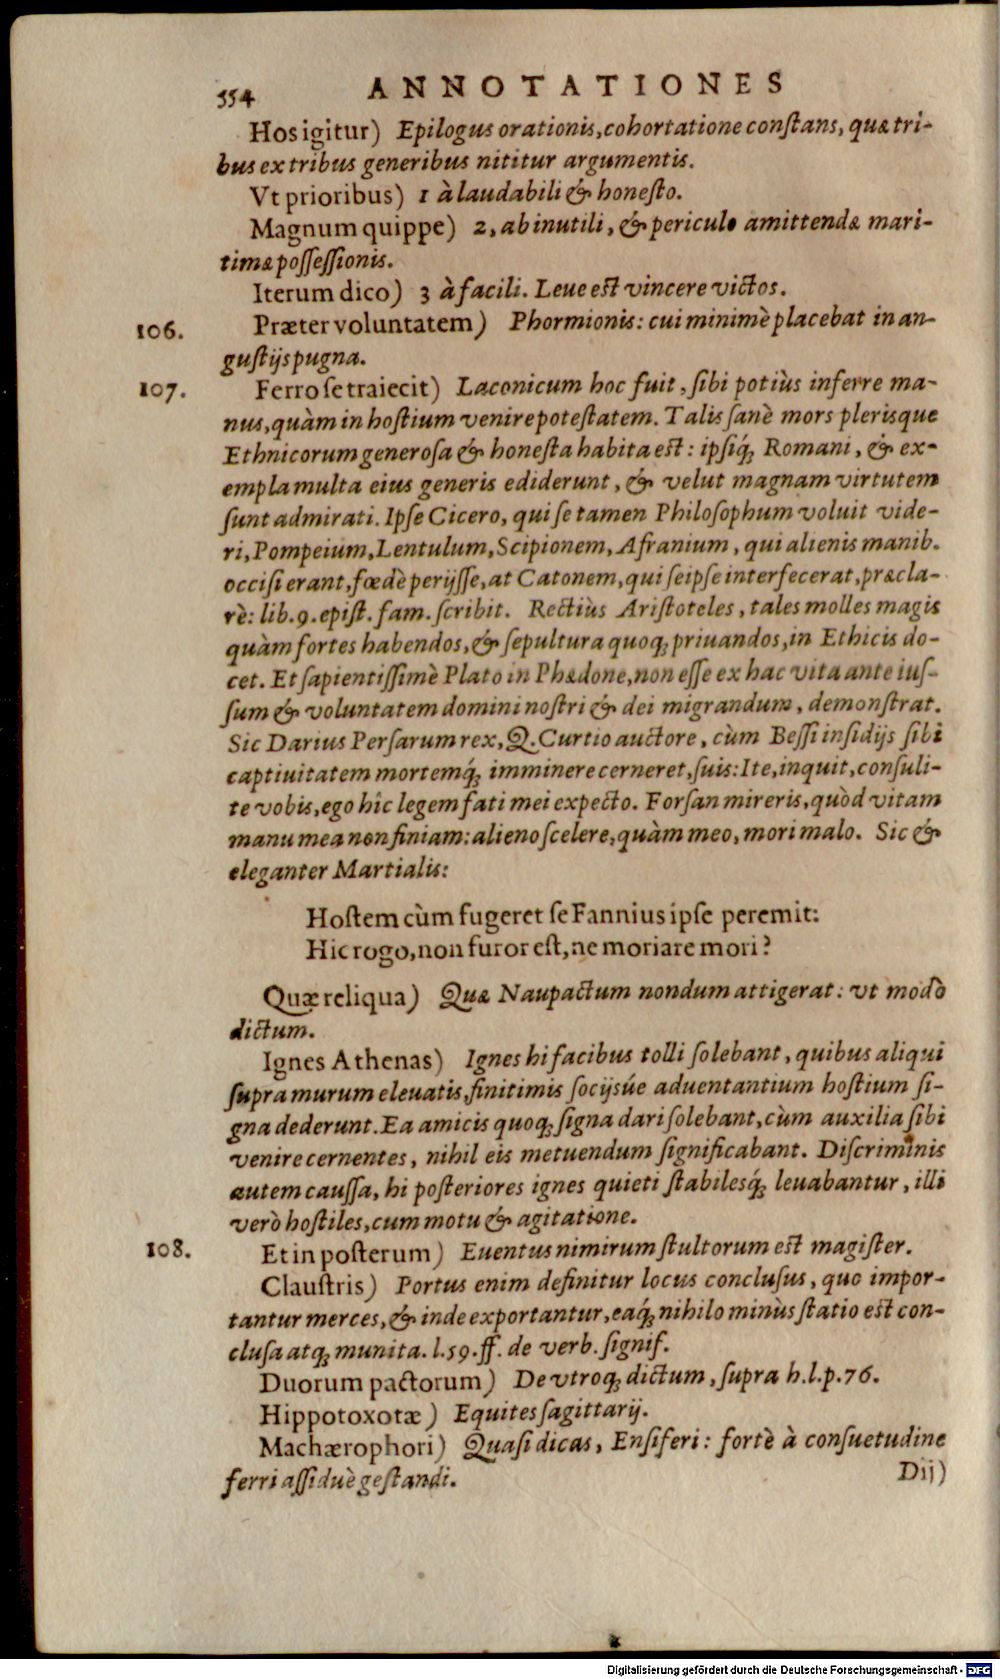 554 ANNOTATIONES
Hos igitur) Epilogus orationis, cohortatione constans, quæ tri-
bus ex tribus generibus nititur argumentis.
Vt prioribus) 1 à laudabili & honesto.
Magnum quippe) 2, ab inutili, & periculo amittendæ mari-
timæ possessionis.
Iterum dico) 3 à facili. Leue est vincere victos.
106. Præter voluntatem) Phormionis: cui minimè placebat in an-
gustijs pugna.
107. Ferro se traiecit) Laconicum hoc fuit, sibi potiùs inferre ma-
nus, quàm in hostium venire potestatem. Talis sanè mors plerisque
Ethnicorum generosa & honesta habita est: ipsiq́; Romani, & ex-
empla multa eius generis ediderunt, & velut magnam virtutem
sunt admirati. Ipse Cicero, qui se tamen Philosophum voluit vide-
ri, Pompeium, Lentulum, Scipionem, Afranium, qui alienis manib.
occisi erant, fœdè perijsse, at Catonem, qui seipse interfecerat, præcla-
rè: lib. 9. epist. fam. scribit. Rectiùs Aristoteles, tales molles magis
quàm fortes habendos, & sepultura quoq; priuandos, in Ethicis do-
cet. Et sapientissimè Plato in Phædone, non esse ex hac vita ante ius-
sum & voluntatem domini nostri & dei migrandum, demonstrat.
Sic Darius Persarum rex, Q. Curtio auctore, cùm Bessi insidijs sibi
captiuitatem mortemq́; imminere cerneret, suis: Ite, inquit, consuli-
te vobis, ego hîc legem fati mei expecto. Forsan mireris, quòd vitam
manu mea non finiam: alieno scelere, quàm meo, mori malo. Sic &
eleganter Martialis:
Hostem cùm fugeret se Fannius ipse peremit:
Hic rogo, non furor est, ne moriare mori?
Quæ reliqua) Quæ Naupactum nondum attigerat: vt modò
dictum.
Ignes Athenas) Ignes hi facibus tolli solebant, quibus aliqui
supra murum eleuatis, finitimis socijsúe aduentantium hostium si-
gna dederunt. Ea amicis quoq; signa dari solebant, cùm auxilia sibi
venire cernentes, nihil eis metuendum significabant. Discriminis
autem caussa, hi posteriores ignes quieti stabilesq́; leuabantur, illi
verò hostiles, cum motu & agitatione.
108. Et in posterum) Euentus nimirum stultorum est magister.
Claustris) Portus enim definitur locus conclusus, quo impor-
tantur merces, & inde exportantur, eaq́; nihilo minùs statio est con-
clusa atq; munita. l. 59. ff. de verb. signif.
Duorum pactorum) De vtroq; dictum, supra h. l. p. 76.
Hippotoxotæ) Equites sagittarij.
Machærophori) Quasi dicas, Ensiferi: fortè à consuetudine
ferri assiduè gestandi.
Dij)
Digitalisierung gefördert durch die Deutsche Forschungsgemeinschaft - DFG